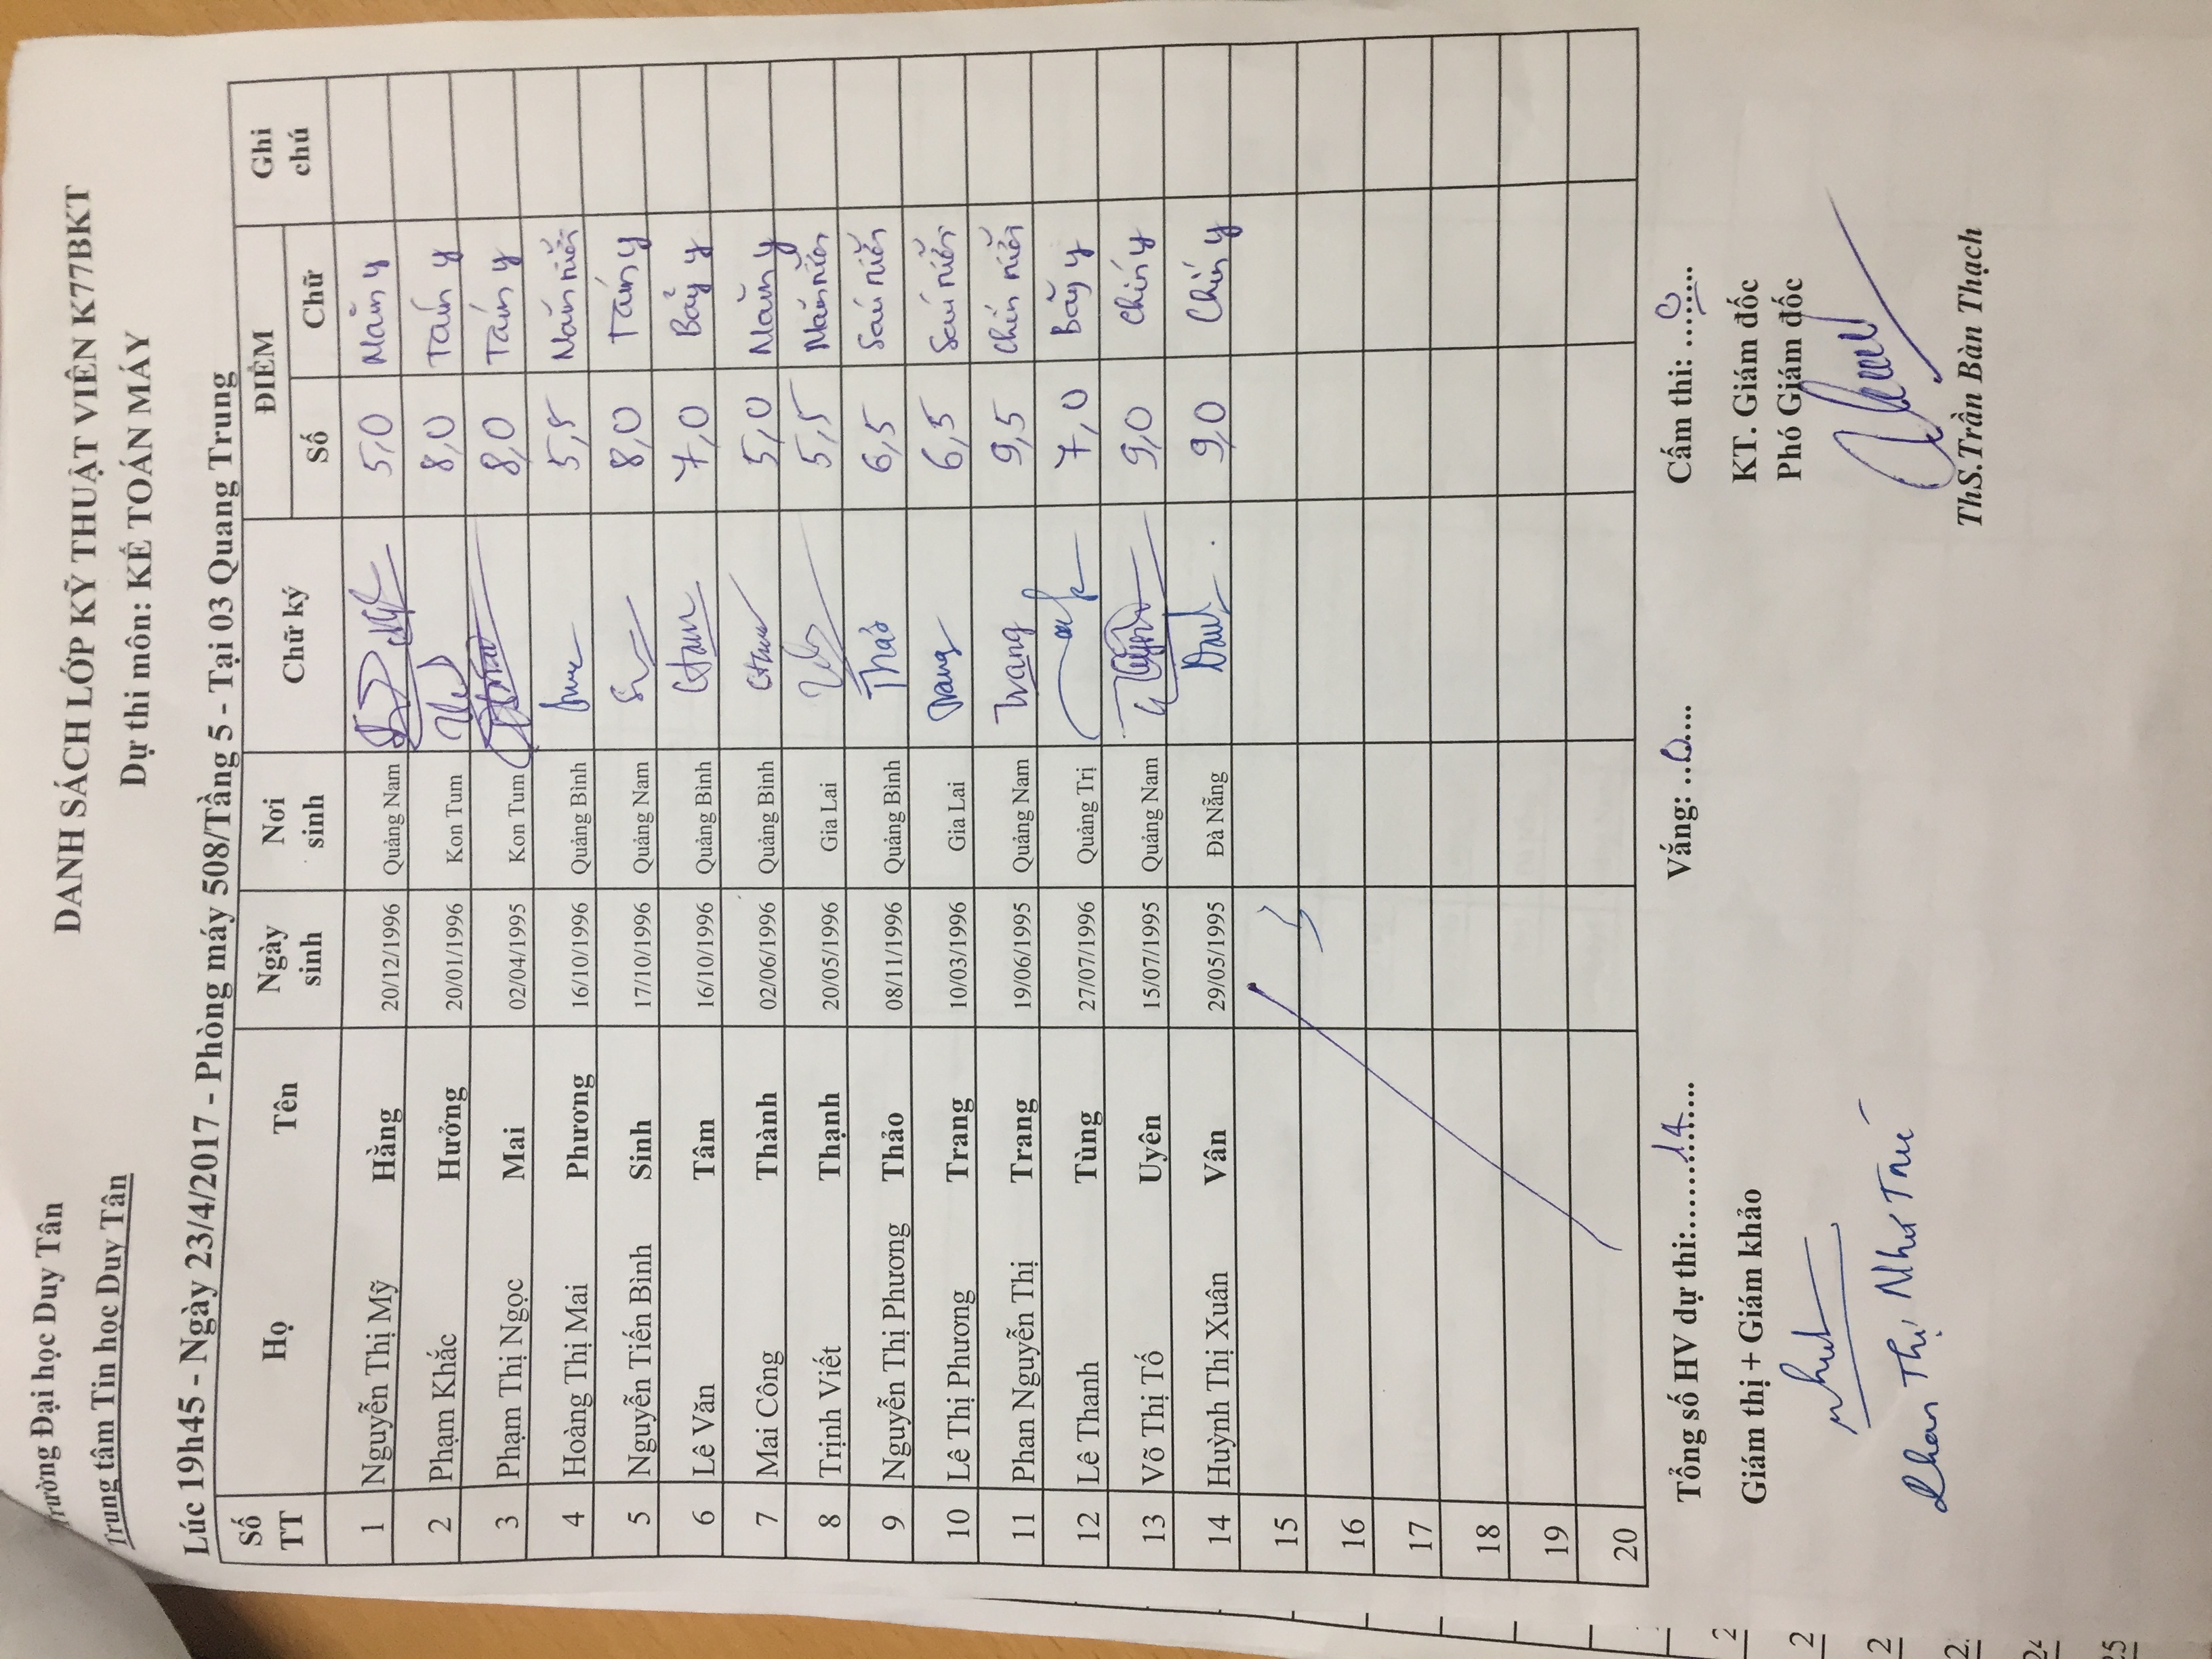 Trường Đại học Duy Tân
Trung tâm Tin học Duy Tân
DANH SÁCH LỚP KỸ THUẬT VIÊN K77BKT
Dự thi môn: KẾ TOÁN MÁY
Lúc 19h45 - Ngày 23/4/2017 - Phòng máy 508/Tầng 5 - Tại 03 Quang Trung
Số TT Họ Tên Ngày sinh Nơi sinh Chữ ký ĐIỂM Ghi chú
Số Chữ
1 Nguyễn Thị Mỹ Hằng 20/12/1996 Quảng Nam 5,0 Năm y
2 Phạm Khắc Hưởng 20/01/1996 Kon Tum 8,0 Tám y
3 Phạm Thị Ngọc Mai 02/04/1995 Kon Tum 8,0 Tám y
4 Hoàng Thị Mai Phương 16/10/1996 Quảng Bình 5,5 Năm rưỡi
5 Nguyễn Tiến Bình Sinh 17/10/1996 Quảng Nam 8,0 Tám y
6 Lê Văn Tâm 16/10/1996 Quảng Bình 7,0 Bảy y
7 Mai Công Thành 02/06/1996 Quảng Bình 5,0 Năm y
8 Trịnh Viết Thạnh 20/05/1996 Gia Lai 5,5 Năm rưỡi
9 Nguyễn Thị Phương Thảo 08/11/1996 Quảng Bình Thảo 6,5 Sáu rưỡi
10 Lê Thị Phương Trang 10/03/1996 Gia Lai Trang 6,5 Sáu rưỡi
11 Phan Nguyễn Thị Trang 19/06/1995 Quảng Nam Trang 9,5 Chín rưỡi
12 Lê Thanh Tùng 27/07/1996 Quảng Trị 7,0 Bảy y
13 Võ Thị Tố Uyên 15/07/1995 Quảng Nam 9,0 Chín y
14 Huỳnh Thị Xuân Vân 29/05/1995 Đà Nẵng 9,0 Chín y
15
16
17
18
19
20
Tổng số HV dự thi:.......14....... Vắng: ...0..... Cấm thi: .....0.....
Giám thị + Giám khảo KT. Giám đốc
Phó Giám đốc
Phan Thị Như Trúc
ThS.Trần Bàn Thạch
2
2
2
2
24
25